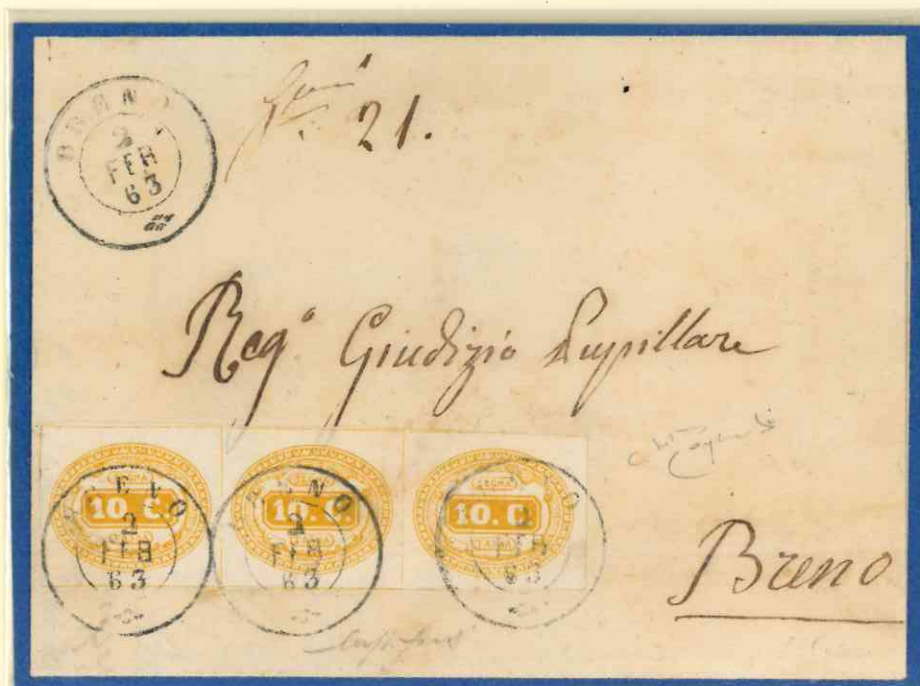 BRENO
2
FEB
63
21.
Reg° Giudizio Pupillare
10. C.
10. C.
10. C.
BRENO
2
FEB
63
BRENO
2
FEB
63
BRENO
2
FEB
63
Breno